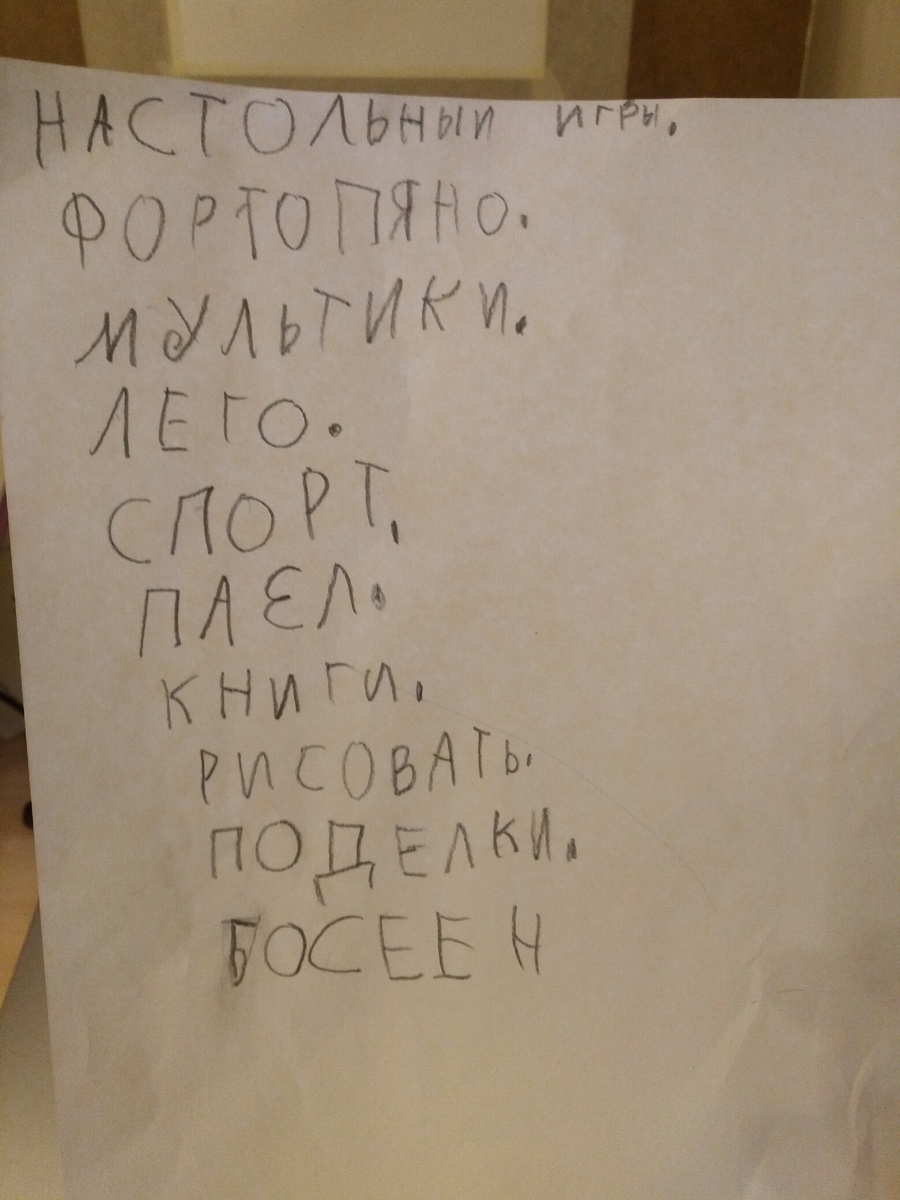 НАСТОЛЬНЫИ ИГРЫ.
ФОРТОПЯНО.
МУЛЬТИКИ.
ЛЕГО.
СПОРТ.
ПАЕЛ.
КНИГИ.
РИСОВАТЬ.
ПОДЕЛКИ.
БОСЕЕН